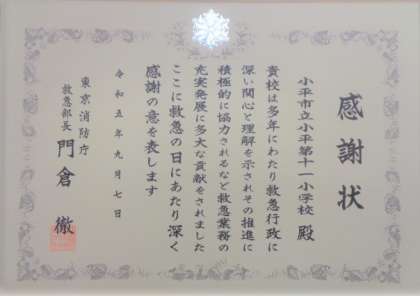 感謝状
小平市立小平第十一小学校 殿
貴校は多年にわたり救急行政に
深い関心と理解を示されその推進に
積極的に協力されるなど救急業務の
充実発展に多大な貢献をされました
ここに救急の日にあたり深く
感謝の意を表します
令和五年九月七日
東京消防庁
救急部長 門倉 徹